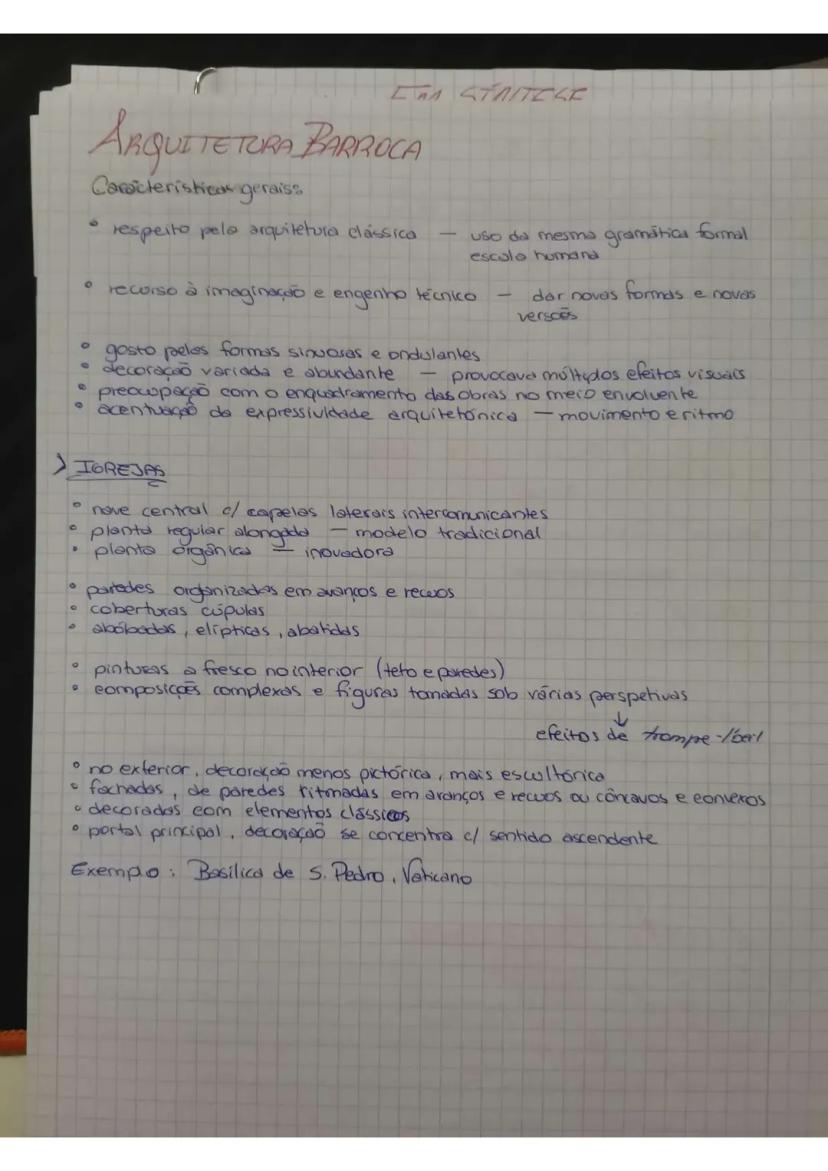 Em SÍNTESE
ARQUITETURA BARROCA
Características gerais:
• respeito pela arquitetura clássica — uso da mesma gramática formal
escala humana
• recurso à imaginação e engenho técnico — dar novas formas e novas
versões
• gosto pelas formas sinuosas e ondulantes
• decoração variada e abundante — provocava múltiplos efeitos visuais
• preocupação com o enquadramento das obras no meio envolvente
• acentuação da expressividade arquitetónica — movimento e ritmo
> IGREJAS
• nave central c/ capelas laterais intercomunicantes
• planta regular alongada — modelo tradicional
• planta orgânica — inovadora
• paredes organizadas em avanços e recuos
• coberturas cúpulas
• abóbadas, elípticas, abatidas
• pinturas a fresco no interior (teto e paredes)
• composições complexas e figuras tomadas sob várias perspetivas
↓
efeitos de trompe-l'oeil
• no exterior, decoração menos pictórica, mais escultórica
• fachadas, de paredes ritmadas em avanços e recuos ou côncavos e convexos
• decoradas com elementos clássicos
• portal principal, decoração se concentra c/ sentido ascendente
Exemplo: Basílica de S. Pedro, Vaticano